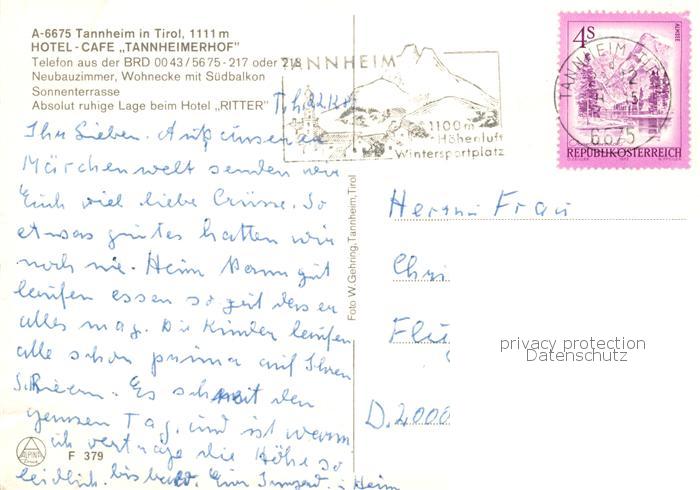 A-6675 Tannheim in Tirol, 1111 m
HOTEL-CAFE „TANNHEIMERHOF"
Telefon aus der BRD 0043/5675-217 oder 218
Neubauzimmer, Wohnecke mit Südbalkon
Sonnenterrasse
Absolut ruhige Lage beim Hotel „RITTER"
Ihr Lieben. Aus unserer
Märchenwelt senden wir
Euch viel liebe Grüsse. So
etwas gutes hatten wir
noch nie. Heim kann gut
laufen essen so gut dass er
alles mag. Die Kinder laufen
alle schon prima auf Ihren
Es schneit den
ganzen Tag, und ist warm
ich vertrage die Höhe so
leidlich. bis bald. Eure Irmgard. u Heim
ALPINA
F 379
Foto W. Gehring, Tannheim, Tirol
TANNHEIM
1100 m
Höhenluft
Wintersportplatz
4S
ALMSEE
REPUBLIK ÖSTERREICH
TANNHEIM TIROL
6675
Herrn u Frau
Chri
D. 2000
privacy protection
Datenschutz